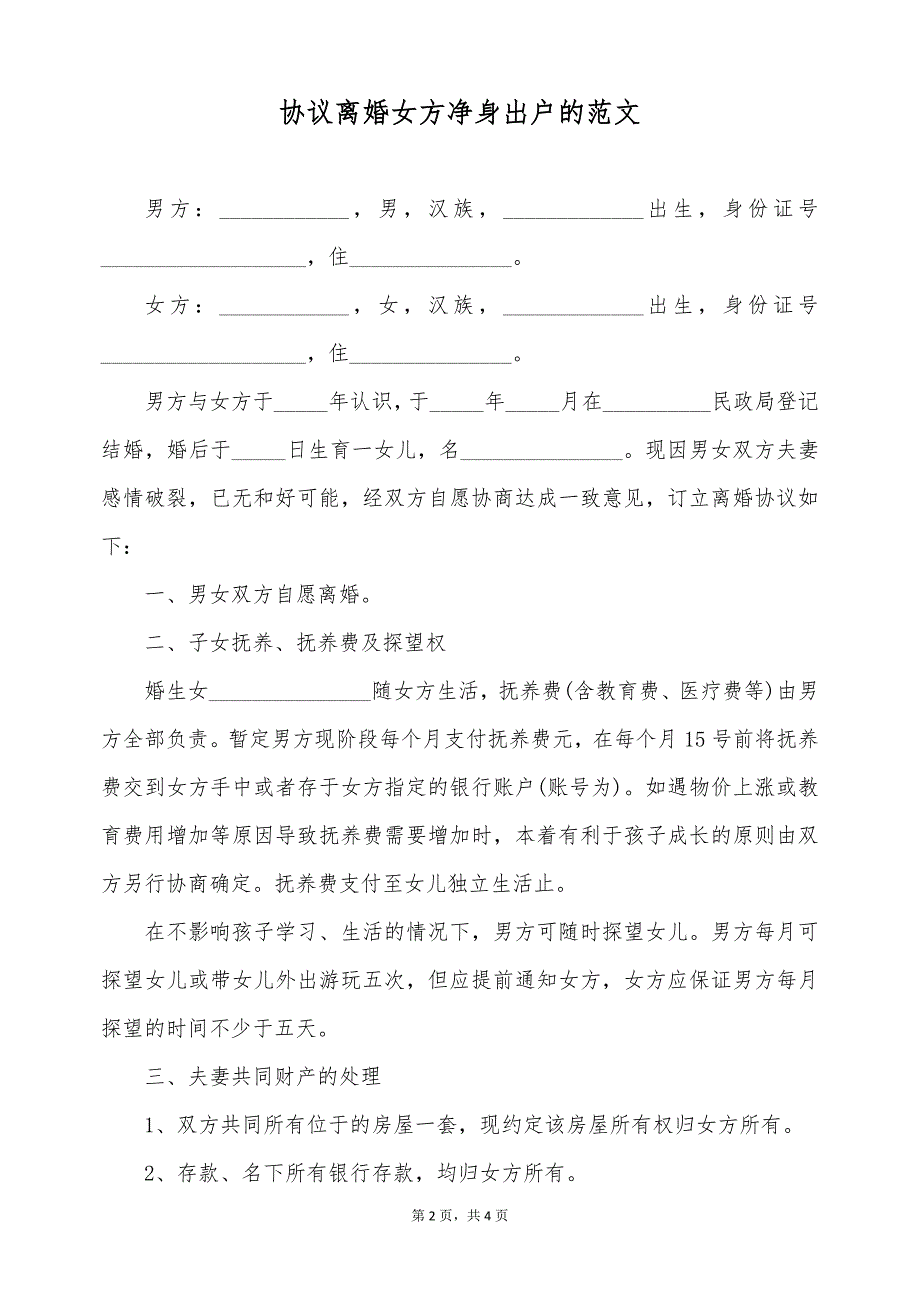 协议离婚女方净身出户的范文
男方：____________，男，汉族，_____________出生，身份证号
___________________，住_______________。
女方：____________，女，汉族，_____________出生，身份证号
___________________，住_______________。
男方与女方于_____年认识，于_____年_____月在__________民政局登记
结婚，婚后于_____日生育一女儿，名_______________。现因男女双方夫妻
感情破裂，已无和好可能，经双方自愿协商达成一致意见，订立离婚协议如
下：
一、男女双方自愿离婚。
二、子女抚养、抚养费及探望权
婚生女_______________随女方生活，抚养费(含教育费、医疗费等)由男
方全部负责。暂定男方现阶段每个月支付抚养费元，在每个月 15 号前将抚养
费交到女方手中或者存于女方指定的银行账户(账号为)。如遇物价上涨或教
育费用增加等原因导致抚养费需要增加时，本着有利于孩子成长的原则由双
方另行协商确定。抚养费支付至女儿独立生活止。
在不影响孩子学习、生活的情况下，男方可随时探望女儿。男方每月可
探望女儿或带女儿外出游玩五次，但应提前通知女方，女方应保证男方每月
探望的时间不少于五天。
三、夫妻共同财产的处理
1、双方共同所有位于的房屋一套，现约定该房屋所有权归女方所有。
2、存款、名下所有银行存款，均归女方所有。
第 2 页，共 4 页